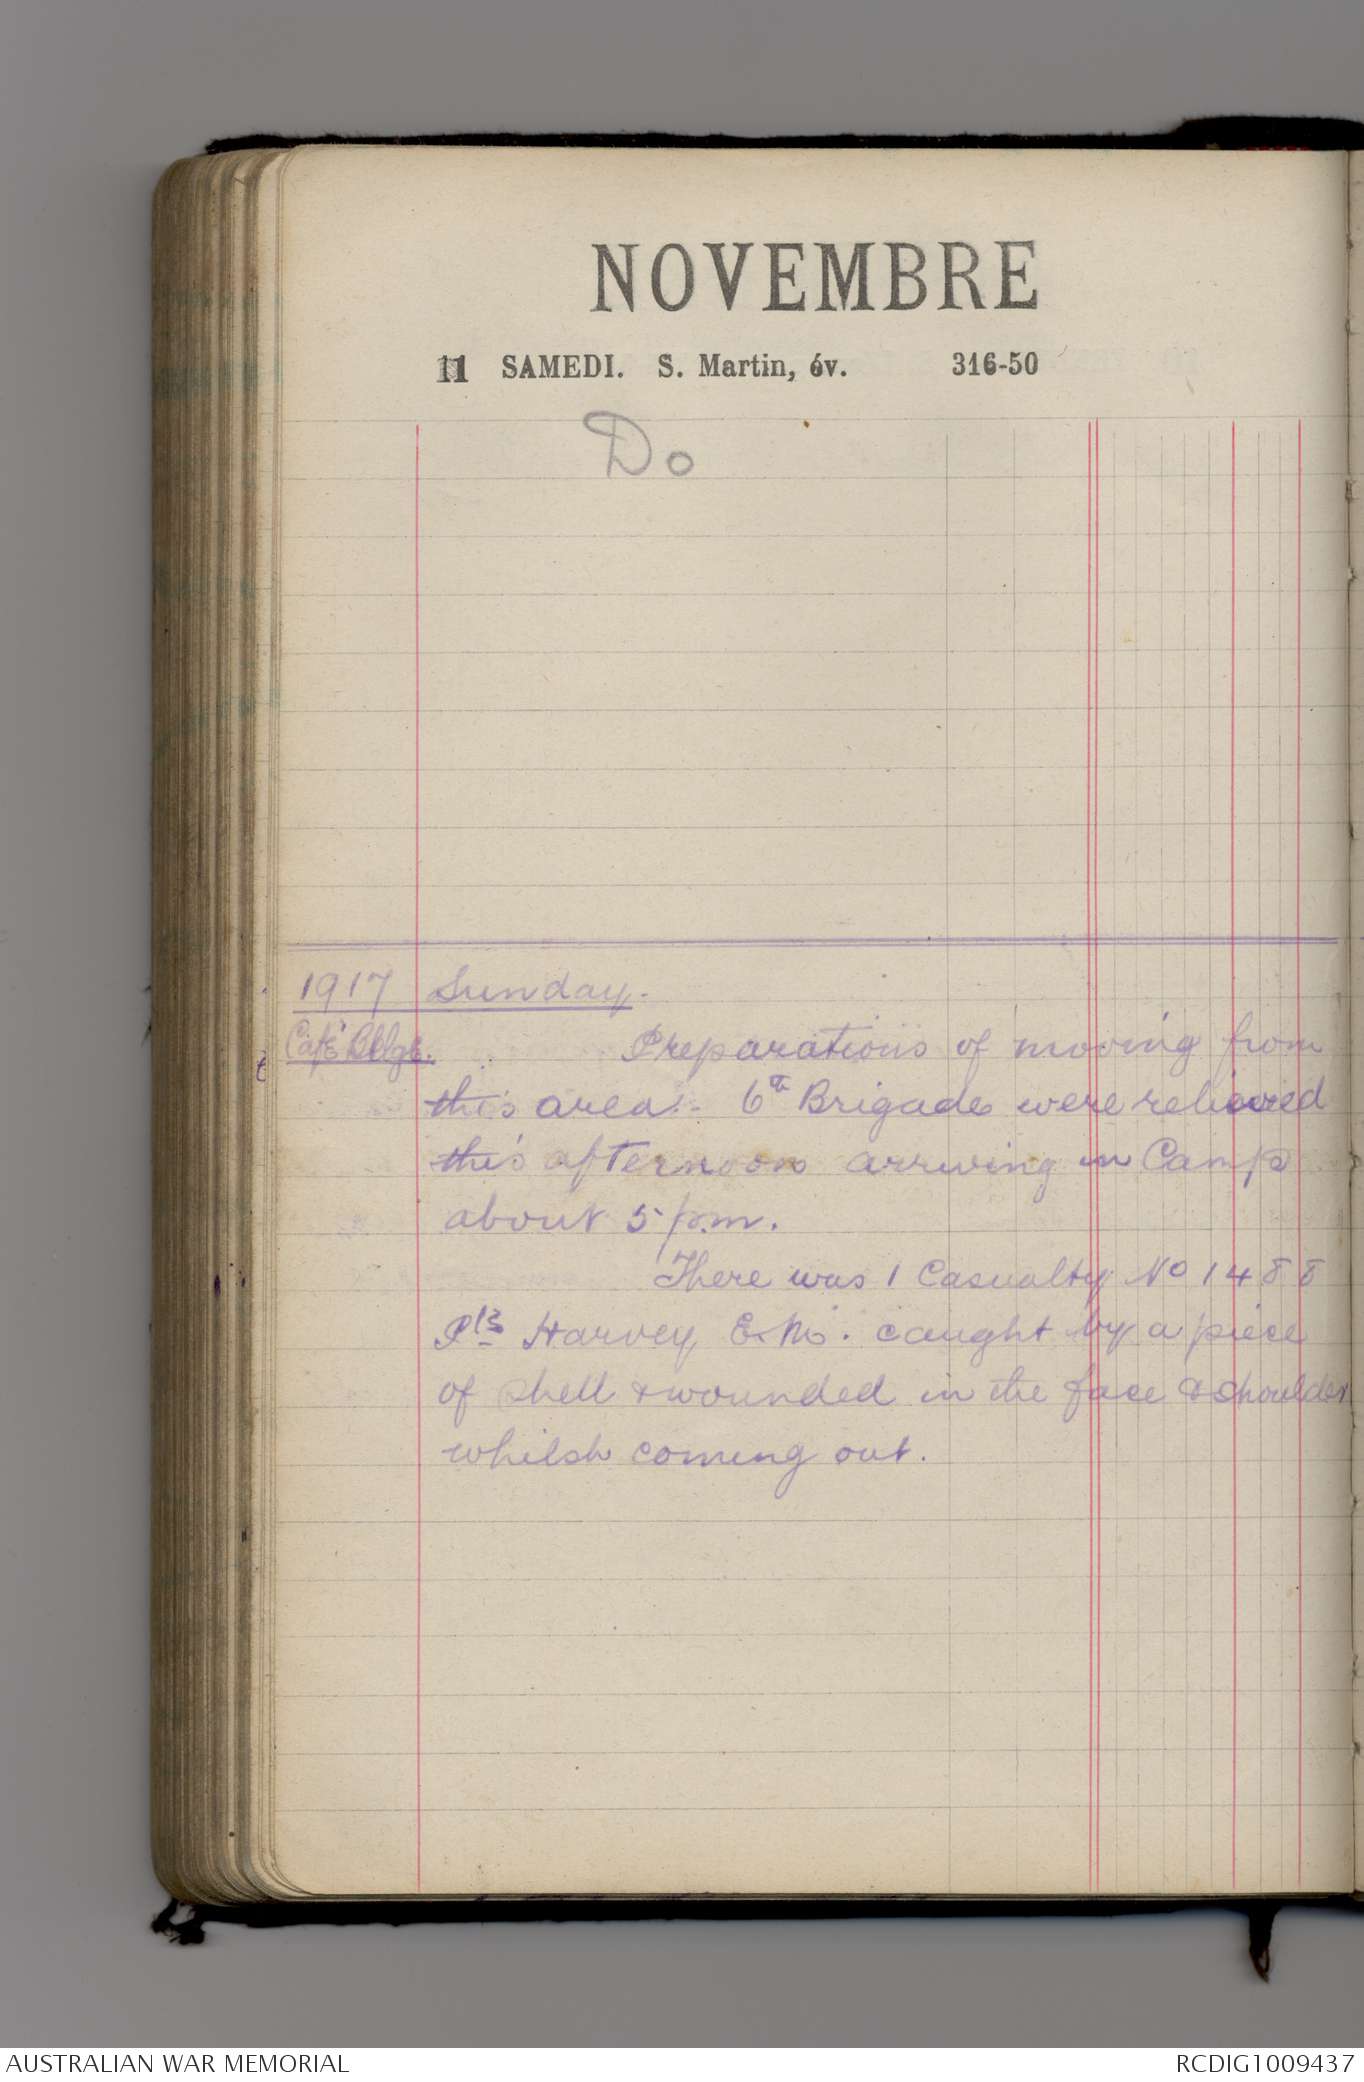 NOVEMBRE
11 SAMEDI. S. Martin, év. 316-50
Do
1917 Sunday.
Café Blge. Preparations of moving from
this area:- 6th Brigade were relieved
this afternoon arriving in Camp
about 5 p.m.
There was 1 Casualty No 1488
Pte Harvey E. M. caught by a piece
of shell & wounded in the face & shoulder
whilst coming out.
AUSTRALIAN WAR MEMORIAL RCDIG1009437